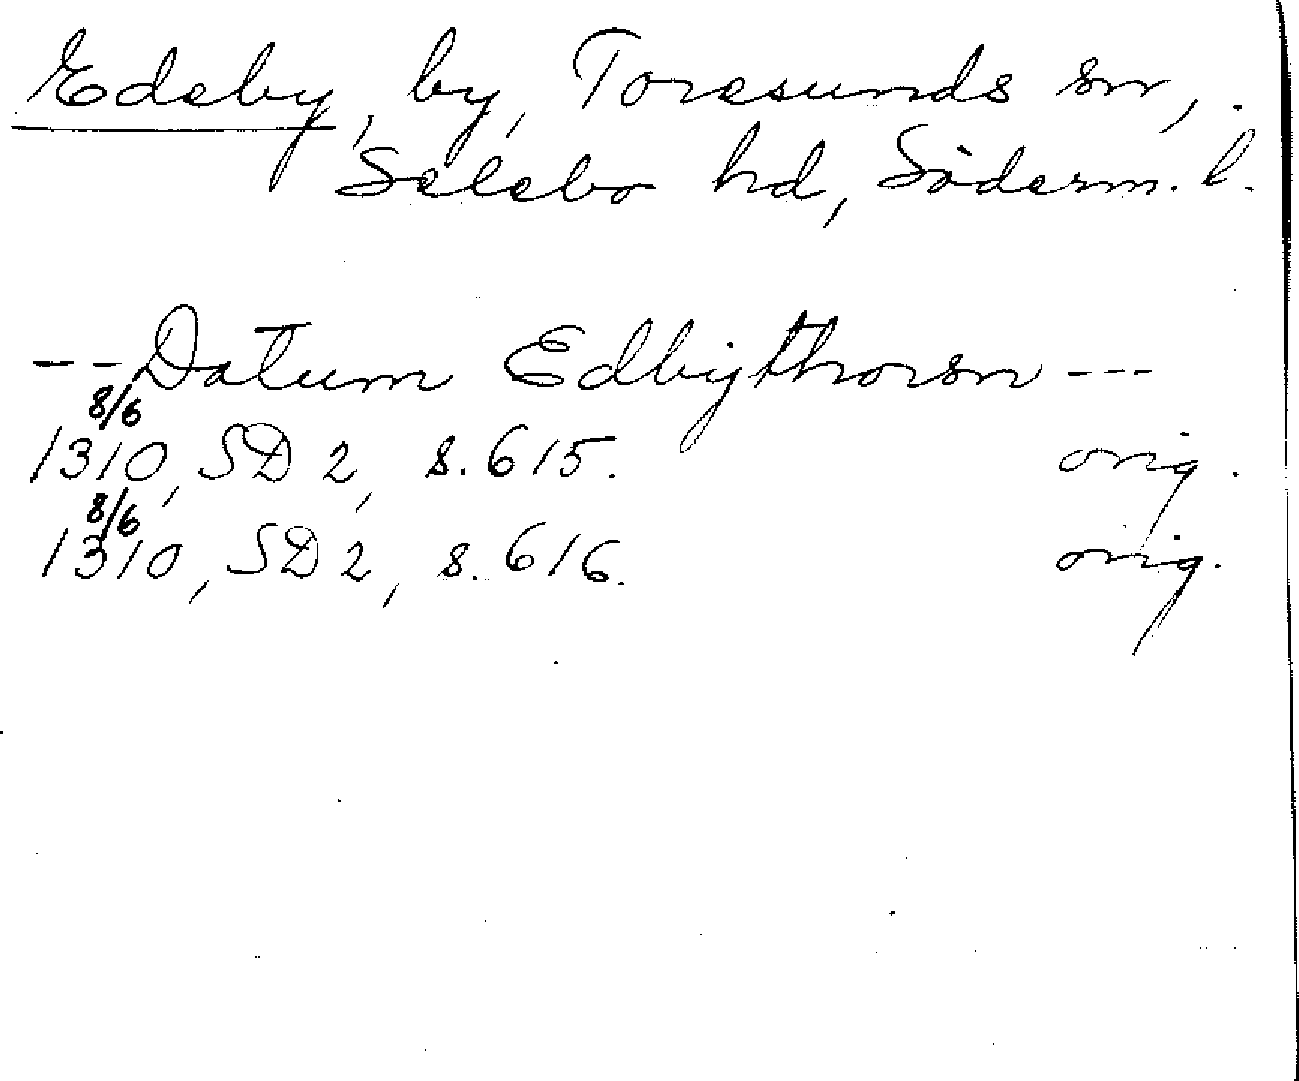 Edeby, by, Toresunds sn,.
Selebo hd, Söderm. l.
-- Datum Edbythorsn ---
8/6
1310, SD 2, s. 615. orig.
8/6
1310, SD 2, s. 616. orig.